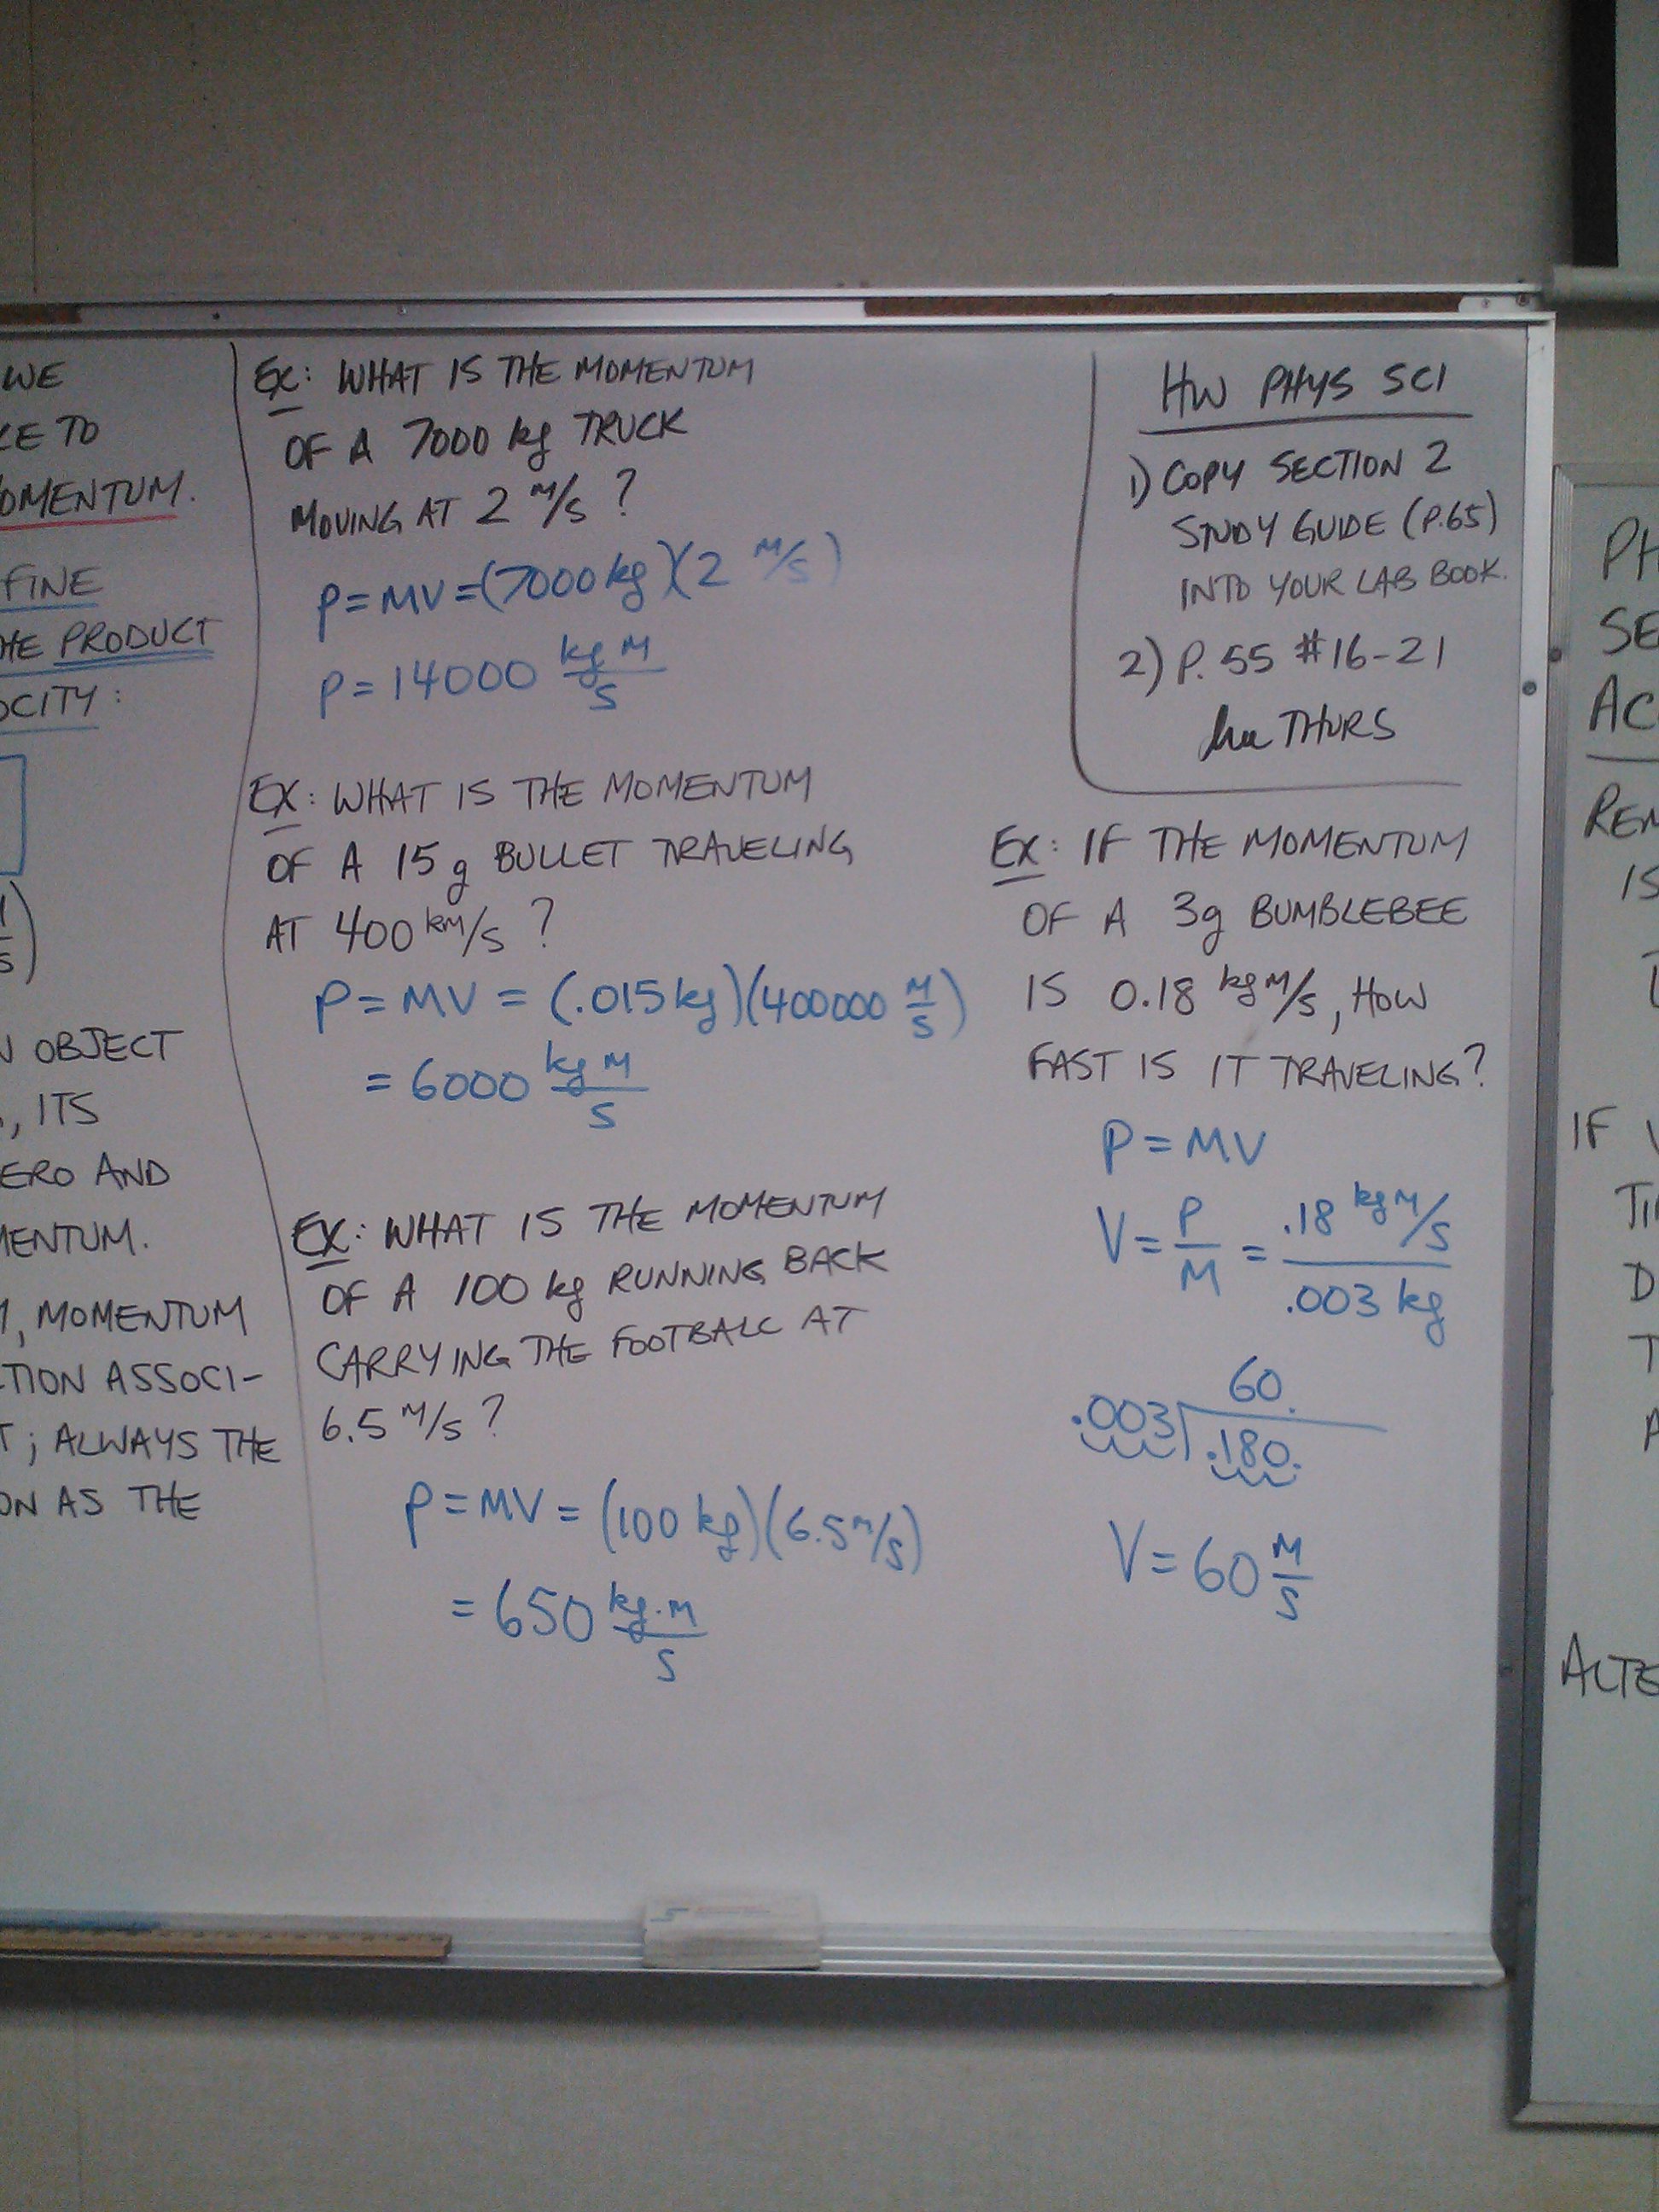 WE
TO
OMENTUM.
FINE
HE PRODUCT
OCITY:
OBJECT
, ITS
ERO AND
MENTUM.
, MOMENTUM
CTION ASSOCI-
T; ALWAYS THE
ON AS THE
EX: WHAT IS THE MOMENTUM
OF A 7000 kg TRUCK
MOVING AT 2 M/S ?
P=MV=(7000kg)(2 M/S)
P=14000 kg M/S
EX: WHAT IS THE MOMENTUM
OF A 15g BULLET TRAVELING
AT 400 km/s ?
P=MV=(.015kg)(400000 M/S)
=6000 kg M/S
EX: WHAT IS THE MOMENTUM
OF A 100 kg RUNNING BACK
CARRYING THE FOOTBALL AT
6.5 M/S ?
P=MV=(100 kg)(6.5 M/S)
=650 kg·M/S
HW PHYS SCI
1) COPY SECTION 2
STUDY GUIDE (P.65)
INTO YOUR LAB BOOK.
2) P. 55 #16-21
THURS
EX: IF THE MOMENTUM
OF A 3g BUMBLEBEE
IS 0.18 kg M/S, HOW
FAST IS IT TRAVELING?
P=MV
V=P/M=.18 kg M/S/.003 kg
60.
.003).180.
V=60 M/S
PH
SE
AC
REM
IS
IF
TI
D
T
A
ALTE